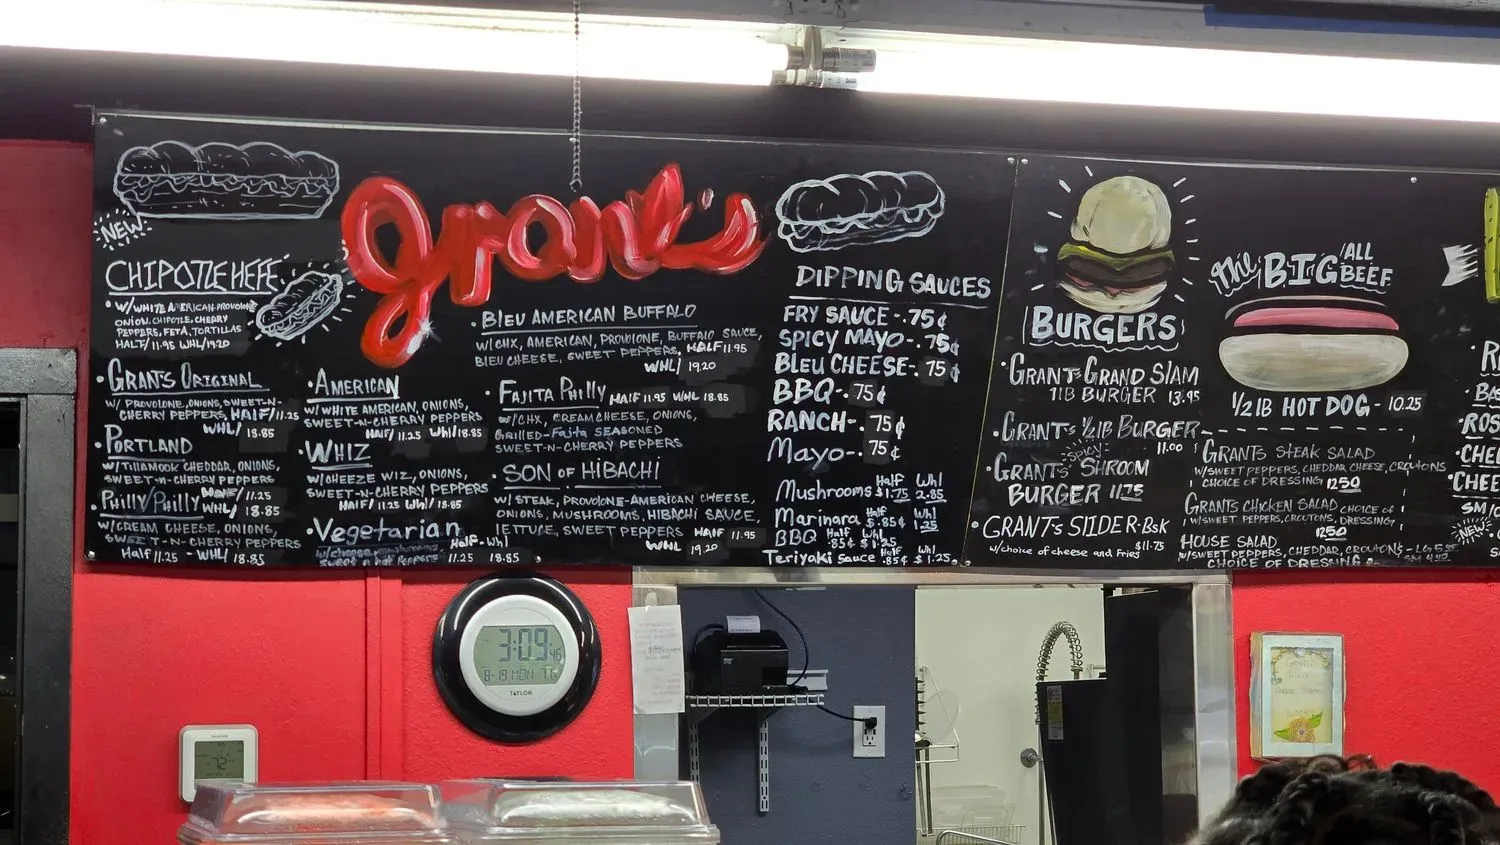 NEW
CHIPOTLE HEFE
• W/WHITE AMERICAN-PROVOLONE
ONION, CHIPOTLE, CHERRY
PEPPERS, FETA, TORTILLAS
HALF/11.95 WHL/19.20
• GRANT'S ORIGINAL
W/ PROVOLONE, ONIONS, SWEET-N-
CHERRY PEPPERS, HALF/11.25
WHL/ 18.85
• PORTLAND
W/TILLAMOOK CHEDDAR, ONIONS,
SWEET-N-CHERRY PEPPERS
HALF/11.25
• PHILLY/PHILLY WHL/ 18.85
W/CREAM CHEESE, ONIONS,
SWEET-N-CHERRY PEPPERS
Half/11.25 - WHL/18.85
grant's
• AMERICAN
W/WHITE AMERICAN, ONIONS,
SWEET-N-CHERRY PEPPERS
HALF/11.25 Whl/18.85
• WHIZ
W/CHEEZE WIZ, ONIONS,
SWEET-N-CHERRY PEPPERS
HALF/11.25 Whl/18.85
• Vegetarian
w/cheese, mushrooms Half-Whl
sweet n hot peppers 11.25 18.85
• BLEU AMERICAN BUFFALO
W/CHX, AMERICAN, PROVOLONE, BUFFALO SAUCE,
BLEU CHEESE, SWEET PEPPERS. HALF 11.95
WHL/ 19.20
• FAJITA PHILLY HALF 11.95 WHL 18.85
W/CHX, CREAM CHEESE, ONIONS,
GRILLED-Fajita SEASONED
SWEET-N-CHERRY PEPPERS
• SON OF HIBACHI
W/STEAK, PROVOLONE-AMERICAN CHEESE,
ONIONS, MUSHROOMS, HIBACHI SAUCE,
LETTUCE, SWEET PEPPERS HALF 11.95
WHL 19.20
DIPPING SAUCES
FRY SAUCE-.75¢
SPICY MAYO-.75¢
BLEU CHEESE-.75¢
BBQ-.75¢
RANCH-.75¢
Mayo-.75¢
Half Whl
Mushrooms $1.75 2.85
Half Whl
Marinara $.85¢ 1.25
Half Whl
BBQ .85¢ $1.25
Half Whl
Teriyaki Sauce .85¢ $1.25
BURGERS
• GRANT'S GRAND SLAM
1LB BURGER 13.95
• GRANT'S 1/2LB BURGER
11.00
SPICY
• GRANT'S SHROOM
BURGER 11.75
• GRANT'S SLIDER-BSK
w/choice of cheese and Fries $11.75
The BIG ALL
BEEF
1/2 LB HOT DOG - 10.25
GRANT'S STEAK SALAD
W/SWEET PEPPERS, CHEDDAR CHEESE, CROUTONS
CHOICE OF DRESSING 12.50
GRANTS CHICKEN SALAD CHOICE OF
W/SWEET PEPPERS, CROUTONS, DRESSING
12.50
HOUSE SALAD
W/SWEET PEPPERS, CHEDDAR, CROUTONS - LG
CHOICE OF DRESSING. SM
NEW
3:09 46
8-19 MON
TAYLOR
72